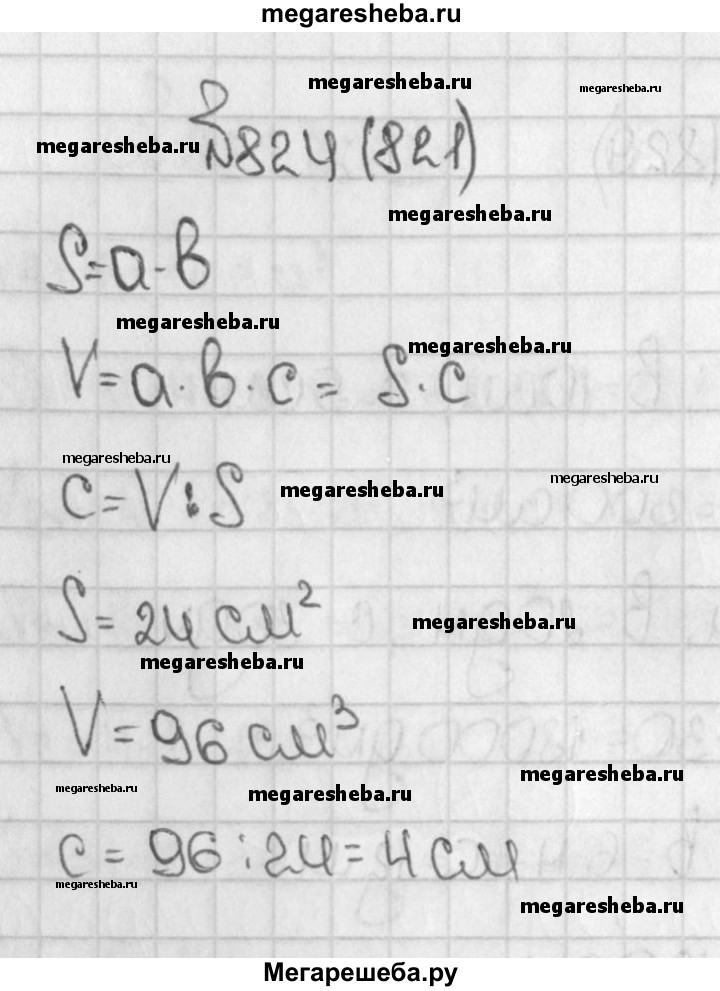 megaresheba.ru
megaresheba.ru
megaresheba.ru
megaresheba.ru
№824 (821)
megaresheba.ru
S=a·b
megaresheba.ru
megaresheba.ru
V=a·b·c= S·c
megaresheba.ru
megaresheba.ru
c=V:S
megaresheba.ru
S=24 см²
megaresheba.ru
megaresheba.ru
V=96 см³
megaresheba.ru
megaresheba.ru
megaresheba.ru
c=96:24=4 см
megaresheba.ru
megaresheba.ru
Мегарешеба.ру